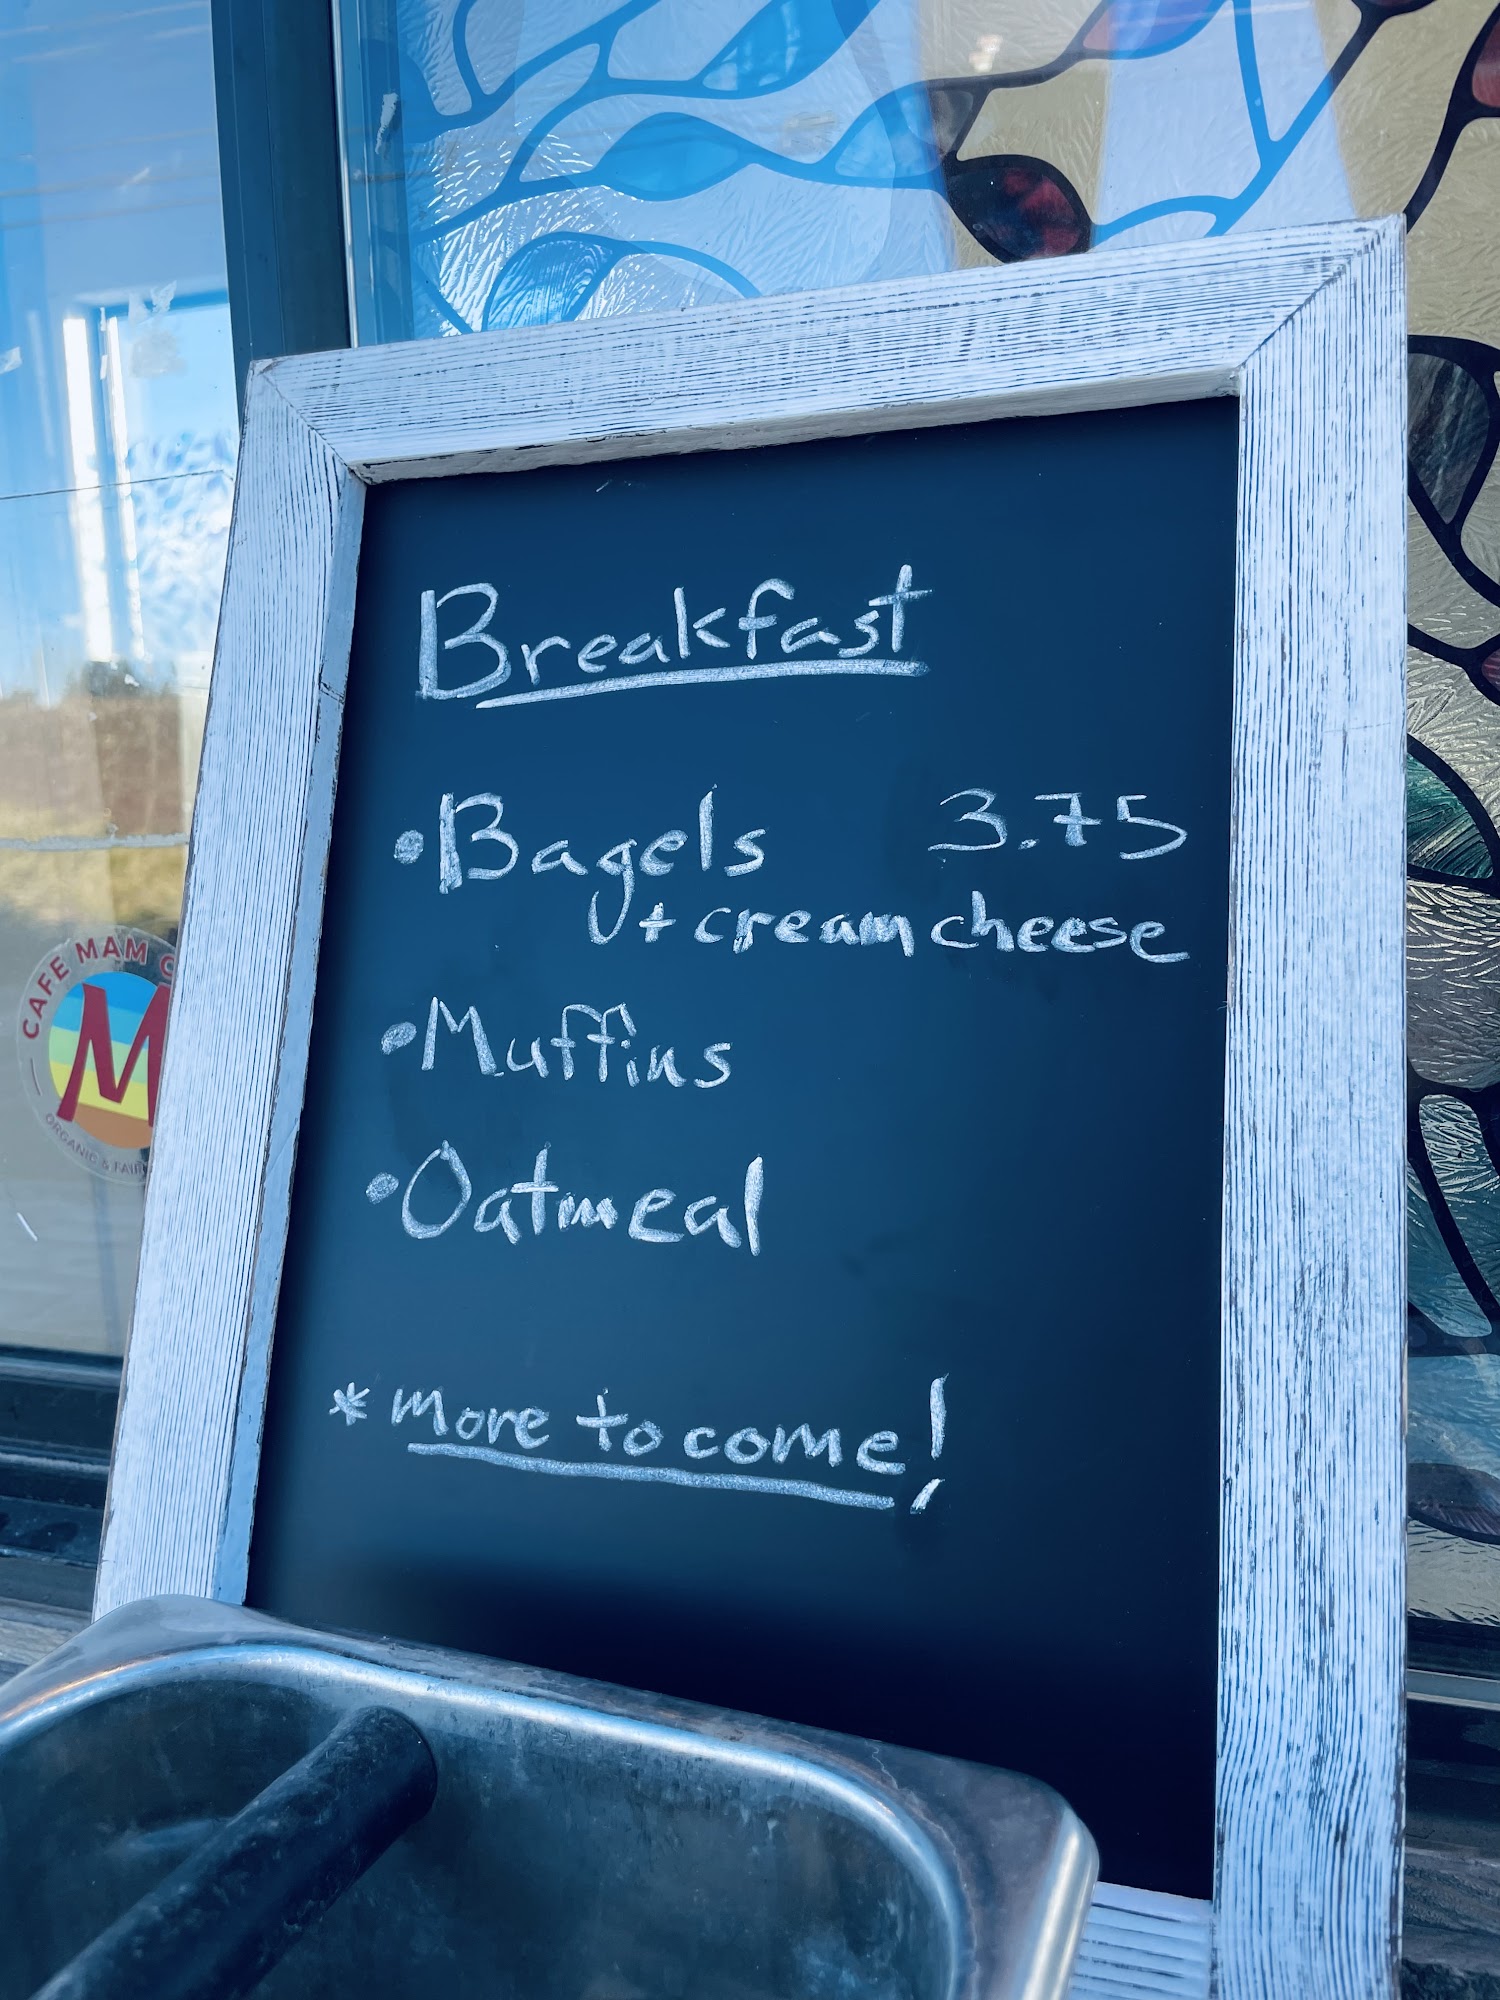 Breakfast
• Bagels 3.75
+ cream cheese
• Muffins
• Oatmeal
* more to come!
CAFE MAM
M
ORGANIC & FAIR